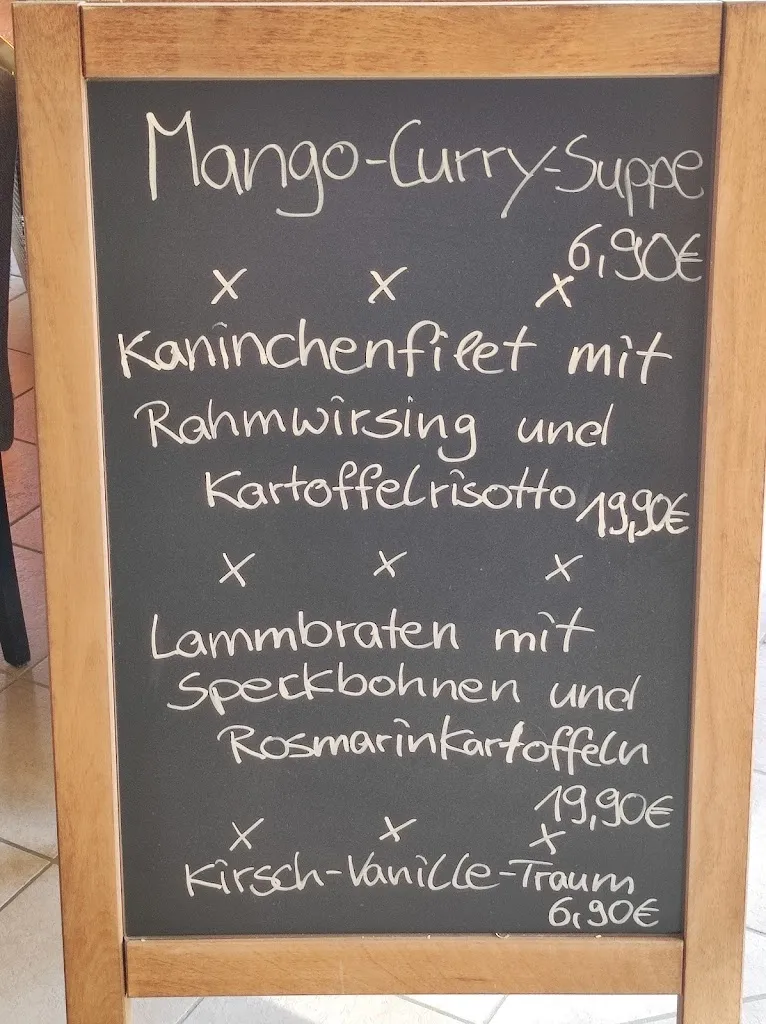 Mango-Curry-Suppe
6,90€
x x x
Kaninchenfilet mit
Rahmwirsing und
Kartoffelrisotto 19,90€
x x x
Lammbraten mit
Speckbohnen und
Rosmarinkartoffeln
19,90€
x x x
Kirsch-Vanille-Traum
6,90€